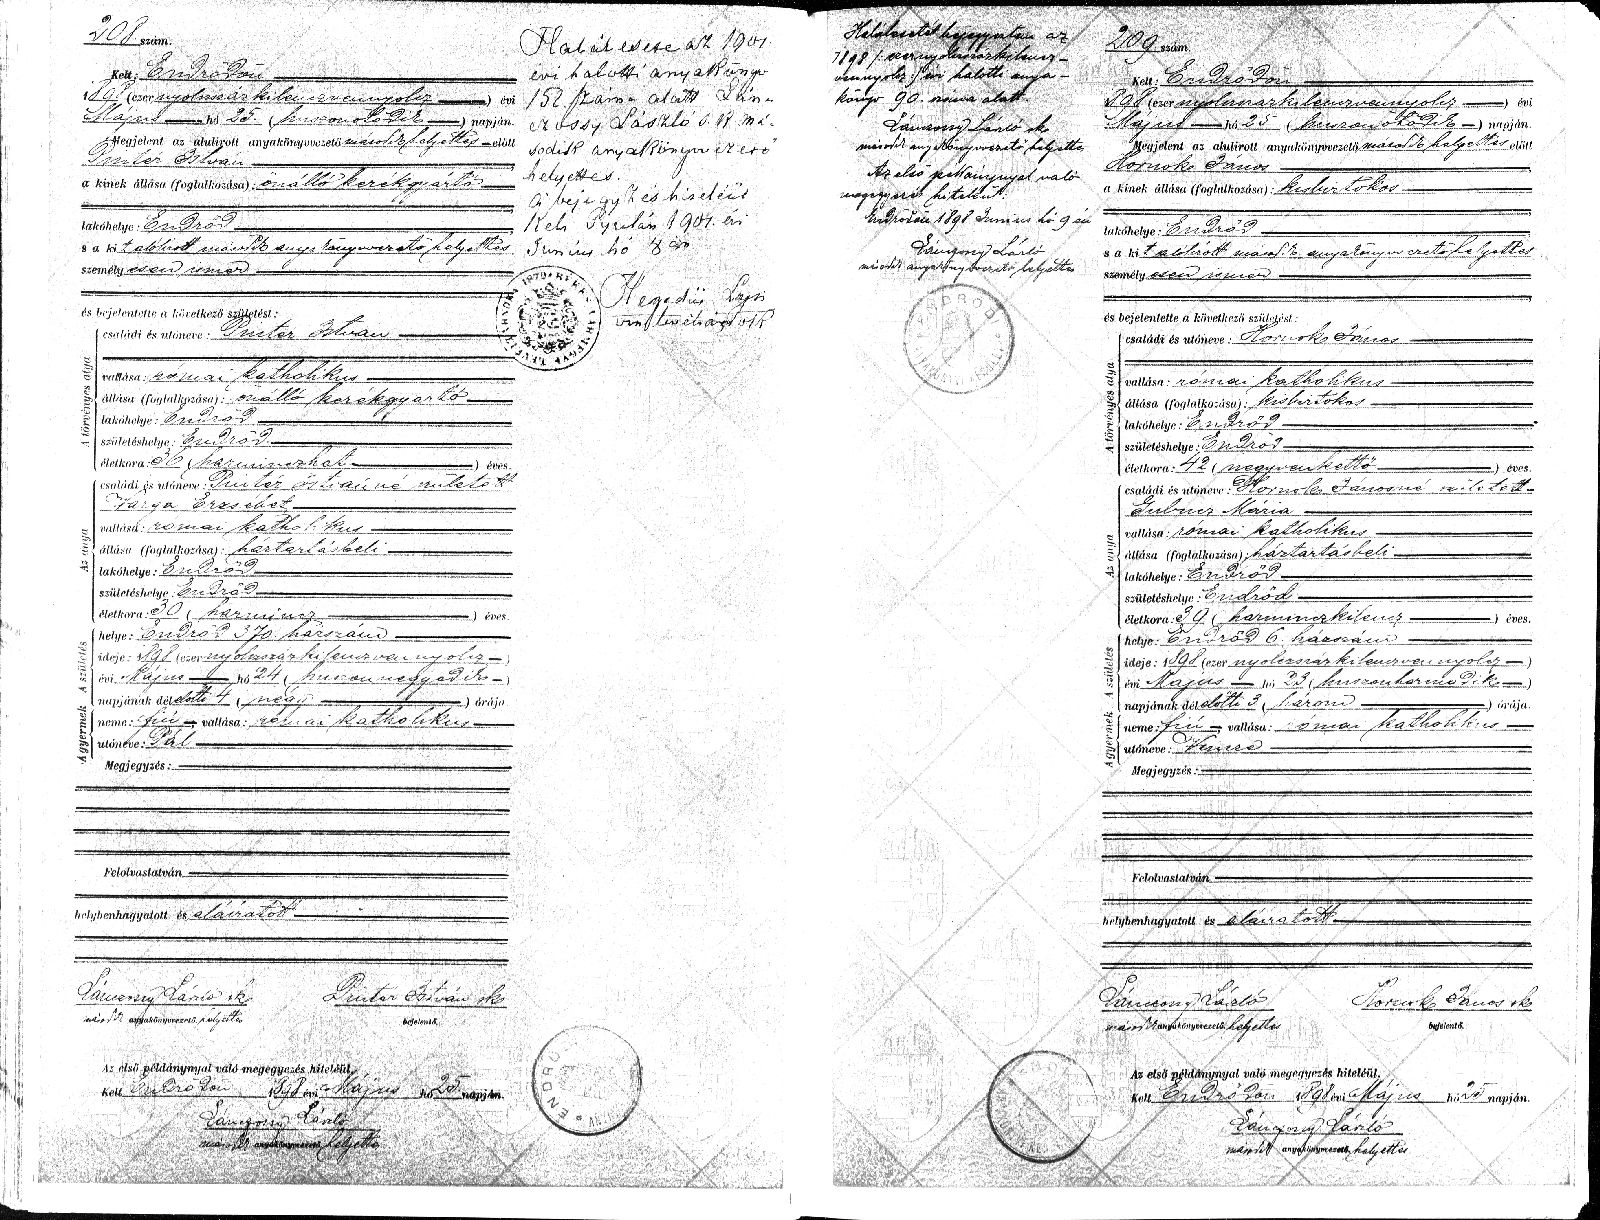 208 szám.
Kelt: Endrődön
1898 (ezer nyolczszázkilenczvennyolcz) évi
Május hó 25. (huszonötödik) napján.
Megjelent az alulirott anyakönyvvezető második helyettes előtt
Pinter István
a kinek állása (foglalkozása): önálló kerékgyártó
lakóhelye: Endrőd
s a ki t alulirott második anyakönyvvezető helyettes
személyesen ismer
és bejelentette a következő születést:
A törvényes atya
családi és utóneve: Pinter István
vallása: római katholikus
állása (foglalkozása): önálló kerékgyártó
lakóhelye: Endrőd
születéshelye: Endrőd
életkora: 36 (harminczhat) éves.
Az anya
családi és utóneve: Pintér Istvánné született
Varga Erzsébet
vallása: római katholikus
állása (foglalkozása): háztartásbeli
lakóhelye: Endrőd
születéshelye: Endrőd
életkora: 30 (harmincz) éves.
A születés
helye: Endrőd 370. házszám
ideje: 1898 (ezer nyolczszázkilenczvennyolcz)
évi Május hó 24 (huszonnegyedik)
napjának délelőtti 4 (négy) órája
A gyermek
neme: fiú, vallása: római katholikus
utóneve: Pál
Megjegyzés:
Felolvastatván
helybenhagyatott és aláiratott
Lánczony László sk
második anyakönyvvezető helyettes
Pinter István sk
bejelentő.
Az első példánynyal való megegyezés hiteléül,
Kelt Endrődön 1898 évi Május hó 25 napján.
Lánczony László
második anyakönyvvezető helyettes
Halál esete az 1901.
évi halotti anyakönyv
152 szám alatt
László s. k. má-
sodik anyakönyvvezető
helyettes.
A bejegyzés hiteléül
Kelt Gyulán 1901. évi
Junius hó 8 án
Hegedűs
Halálesetét bejegyeztem az
1898 /:ezernyolczszázkilencz-
vennyolcz:/ évi halotti anya-
könyv 90. száma alatt.
Lánczony László sk
második anyakönyvvezető helyettes
Az első példánynyal való
megegyezés hiteléül.
Endrődön 1898 Junius hó 9 én
Lánczony László
második anyakönyvvezető helyettes
209 szám.
Kelt: Endrődön
1898 (ezer nyolczszázkilenczvennyolcz) évi
Május hó 25 (huszonötödik) napján.
Megjelent az alulirott anyakönyvvezető második helyettes előtt
Hornok János
a kinek állása (foglalkozása): kisbirtokos
lakóhelye: Endrőd
s a ki t alulirott második anyakönyvvezető helyettes
személyesen ismer
és bejelentette a következő születést:
A törvényes atya
családi és utóneve: Hornok János
vallása: római katholikus
állása (foglalkozása): kisbirtokos
lakóhelye: Endrőd
születéshelye: Endrőd
életkora: 42 (negyvenkettő) éves.
Az anya
családi és utóneve: Hornok Jánosné született
Gubucz Mária
vallása: római katholikus
állása (foglalkozása): háztartásbeli
lakóhelye: Endrőd
születéshelye: Endrőd
életkora: 39 (harminczkilencz) éves.
A születés
helye: Endrőd 6. házszám
ideje: 1898 (ezer nyolczszázkilenczvennyolcz)
évi Május hó 23 (huszonharmadik)
napjának délelőtti 3 (három) órája.
A gyermek
neme: fiú, vallása: római katholikus
utóneve: Vincze
Megjegyzés:
Felolvastatván
helybenhagyatott és aláiratott
Lánczony László
második anyakönyvvezető helyettes
Hornok János sk
bejelentő.
Az első példánynyal való megegyezés hiteléül,
Kelt Endrődön 1898 évi Május hó 25 napján.
Lánczony László
második anyakönyvvezető helyettes